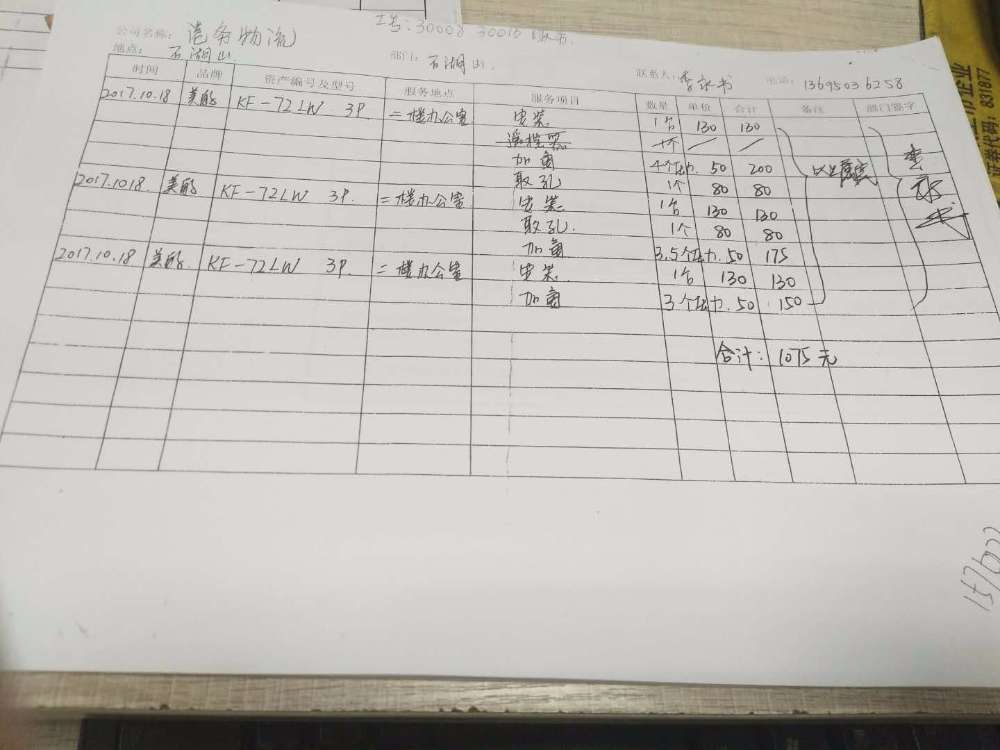 工号:30008 30010
公司名称: 港务物流
地点: 石湖山 部门: 石湖山. 联系人: 李永书 电话: 13695036258
时间 品牌 资产编号及型号 服务地点 服务项目 数量 单价 合计 备注 部门签字
2017.10.18 美的 KF-72LW 3P 二楼办公室 安装 1台 130 130
遥控器 1个 / /
加氟 4个压力. 50 200 以上属实
取孔 1个 80 80
2017.1018. 美的 KF-72LW 3P. 二楼办公室 安装 1台 130 130
取孔. 1个 80 80
加氟 3.5个压力. 50 175
2017.10.18 美的. KF-72LW 3P. 二楼办公室 安装. 1台 130 130
加氟 3个压力. 50 150
合计: 1075元
证券代码: 831877